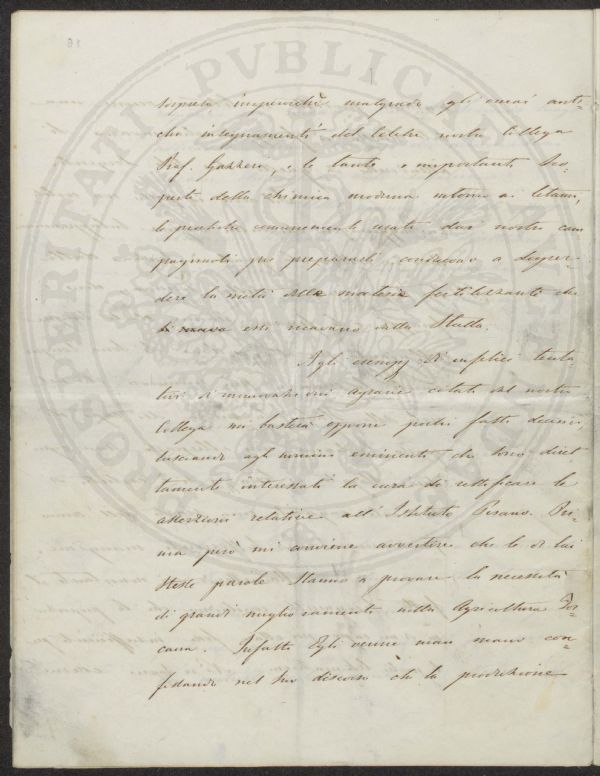 imperocchè malgrado gli omai anti-
chi insegnamenti del celebre nostro Collega
Prof. Gazzeri, e le tante e importanti sco-
perte della chimica moderna intorno ai letami,
le pratiche comunemente usate dai nostri cam
pagnoli per prepararli conducono a disper-
dere la metà delle materie fertilizzanti che
essi ricavano dalla Stalla.
Agli esempj di infelici tenta
tivi di innovazioni agrarie citati dal nostro
Collega mi basterà opporre pochi fatti decisivi
lasciando agli uomini eminenti che sono diret
tamente interessati la cura di rettificare le
asserzioni relative all' Istituto Pisano. Pri-
ma però mi conviene avvertire che le di lui
stesse parole stanno a provare la necessità
di grandi miglioramenti nella Agricoltura Tos-
cana. Infatti Egli venne man mano con-
fessando nel suo discorso che la produzione
PROSPERITATI PVBLICAE AVGENDAE